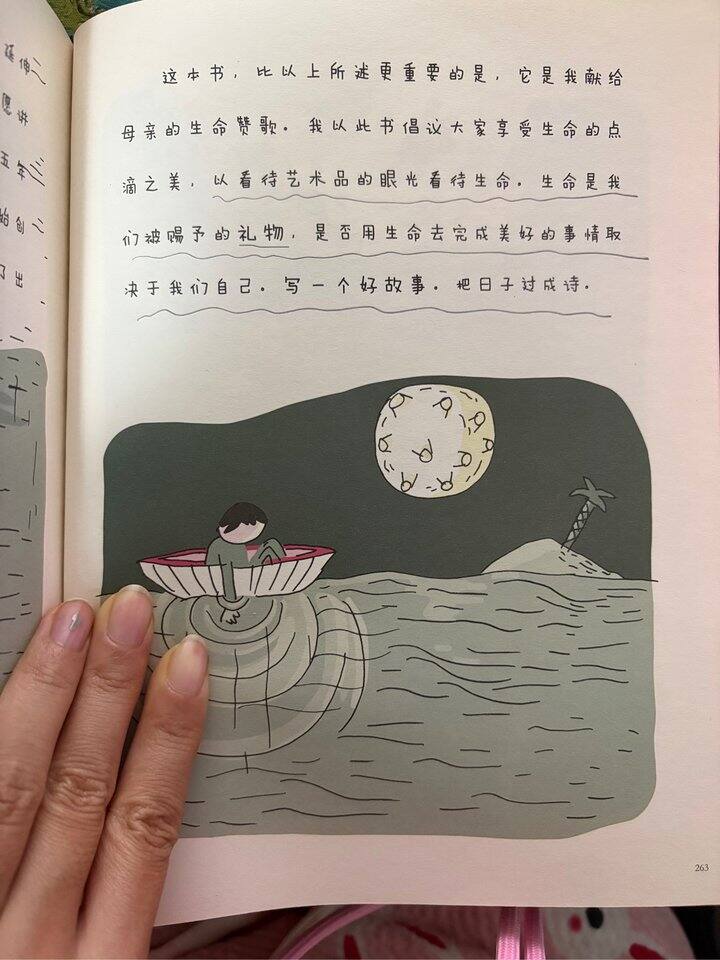 延伸
愿讲
五年
始创
了出
这本书，比以上所述更重要的是，它是我献给
母亲的生命赞歌。我以此书倡议大家享受生命的点
滴之美，以看待艺术品的眼光看待生命。生命是我
们被赐予的礼物，是否用生命去完成美好的事情取
决于我们自己。写一个好故事。把日子过成诗。
263